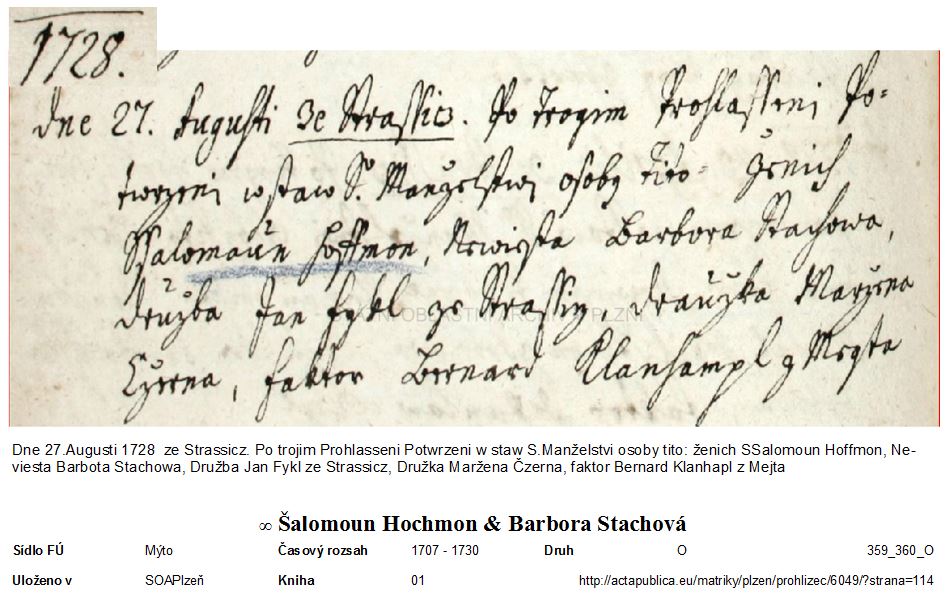 1728.
Dne 27. Augusti ze Strassicz. Po trogim Prohlasseni Po-
twrzeni w staw S. Manzelstwi osoby tito: Ženich
SSalomaun Hoffmon, Newiesta Barbora Stachowa,
družba Jan Fykl ze Strassicz, draužka Maržena
Czerna, faktor Bernard Klanhampl z Meyta
STÁTNÍ OBLASTNÍ ARCHIV V PLZNI
Dne 27.Augusti 1728 ze Strassicz. Po trojim Prohlasseni Potwrzeni w staw S.Manželstvi osoby tito: ženich SSalomoun Hoffmon, Ne-
viesta Barbota Stachowa, Družba Jan Fykl ze Strassicz, Družka Maržena Čzerna, faktor Bernard Klanhapl z Mejta
∞ Šalomoun Hochmon & Barbora Stachová
Sídlo FÚ Mýto Časový rozsah 1707 - 1730 Druh O 359_360_O
Uloženo v SOAPlzeň Kniha 01 http://actapublica.eu/matriky/plzen/prohlizec/6049/?strana=114